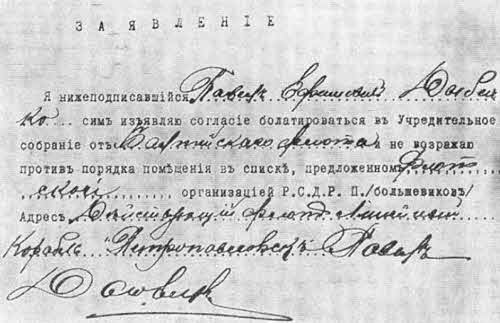 З А Я В Л Е Н І Е
Я нижеподписавшійся Павелъ Ефимовичъ Дыбен
ко... симъ изъявляю согласіе болатироваться въ Учредительное
собраніе отъ Балтійскаго флота не возражаю
противъ порядка помѣщенія въ спискѣ, предложенномъ Флот
ской организаціей Р.С.Д.Р. П./большевиковъ/
Адресъ Дѣйствующій флотъ Линейный
Корабль "Петропавловскъ" Павелъ
Дыбенко